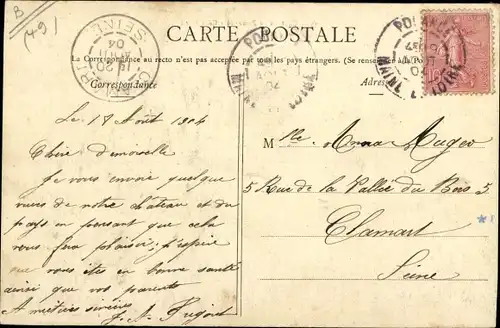 B
(49)
CARTE POSTALE
La Correspondance au recto n'est pas acceptée par tous les pays étrangers. (Se renseigner à la Poste)
Correspondance
Adresse
SEINE
15-20
04
MAINE ET LOIRE
Le 17 Août 1904
Chère demoiselle
Je vous envoie quelque
vues de notre château et du
pays en pensant que cela
vous fera plaisir; j'espère
que vous êtes en bonne santé
ainsi que vos parents
Amitiés sincères
Mlle Anna Auger
5 Rue de la Vallée du Bois 5
Clamart
Seine